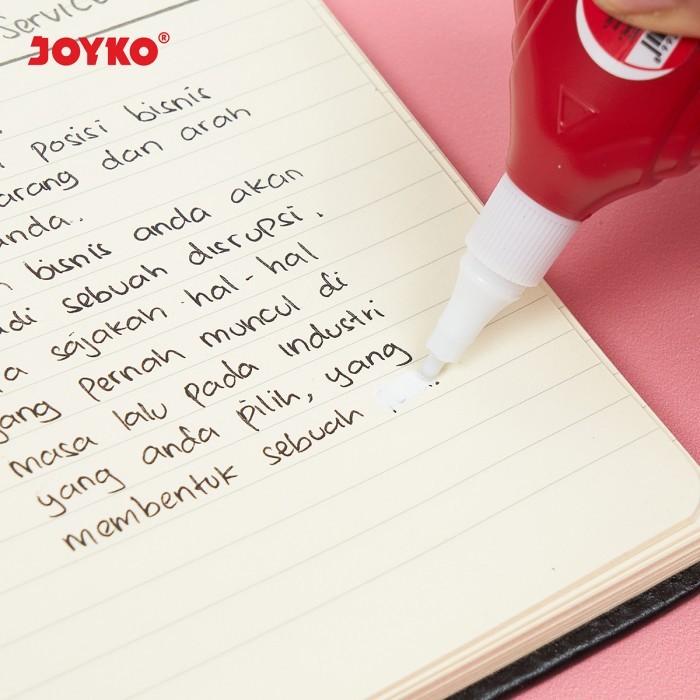 Service
JOYKO®
posisi bisnis
arang dan arah
anda.
bisnis anda akan
sebuah disrupsi.
sajakah hal-hal
yang pernah muncul di
masa lalu pada industri
yang anda pilih, yang
membentuk sebuah